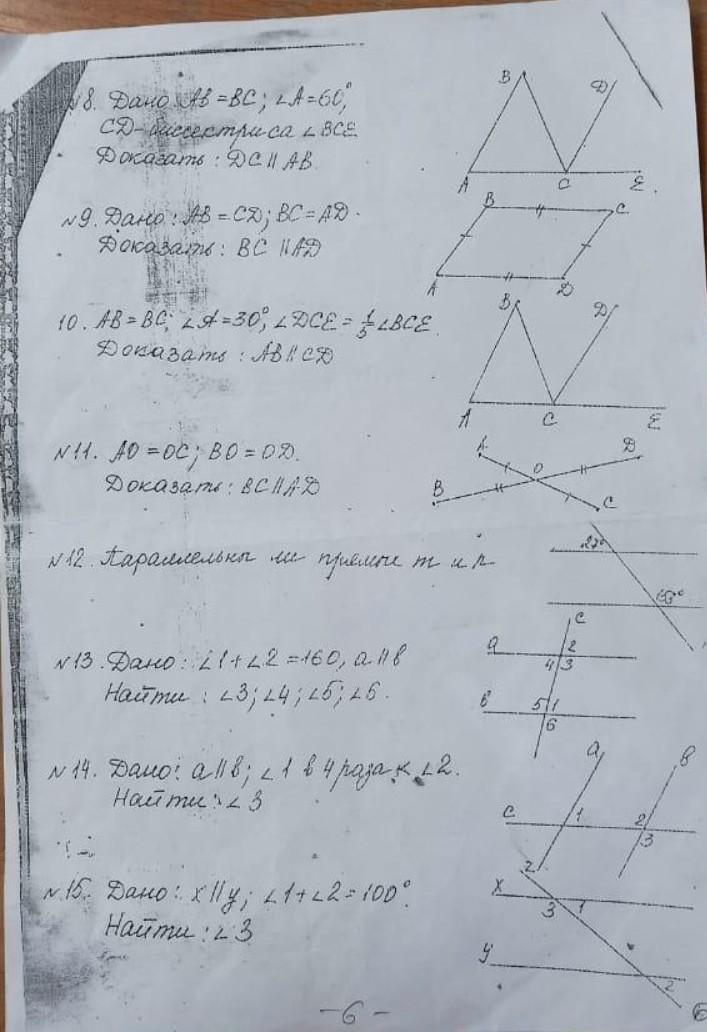 №8. Дано: AB=BC; ∠A=60°,
CD-биссектриса ∠BCE
Доказать: DC∥AB.
B D
A C E
№9. Дано: AB=CD; BC=AD.
Доказать: BC∥AD
B C
A D
10. AB=BC; ∠A=30°, ∠DCE=1/5∠BCE.
Доказать: AB∥CD
B D
A C E
№11. AO=OC; BO=OD.
Доказать: BC∥AD
A O D
B C
№12. Параллельны ли прямые m и n.
27°
№13. Дано: ∠1+∠2=160, a∥b
Найти: ∠3; ∠4; ∠5; ∠6.
c
a 2
4 3
b 5 1
6
№14. Дано: a∥b; ∠1 в 4 раза < ∠2.
Найти: ∠3
a b
c 1 2
3
№15. Дано: x∥y; ∠1+∠2=100°.
Найти: ∠3
2
x 3 1
y 2
-6-